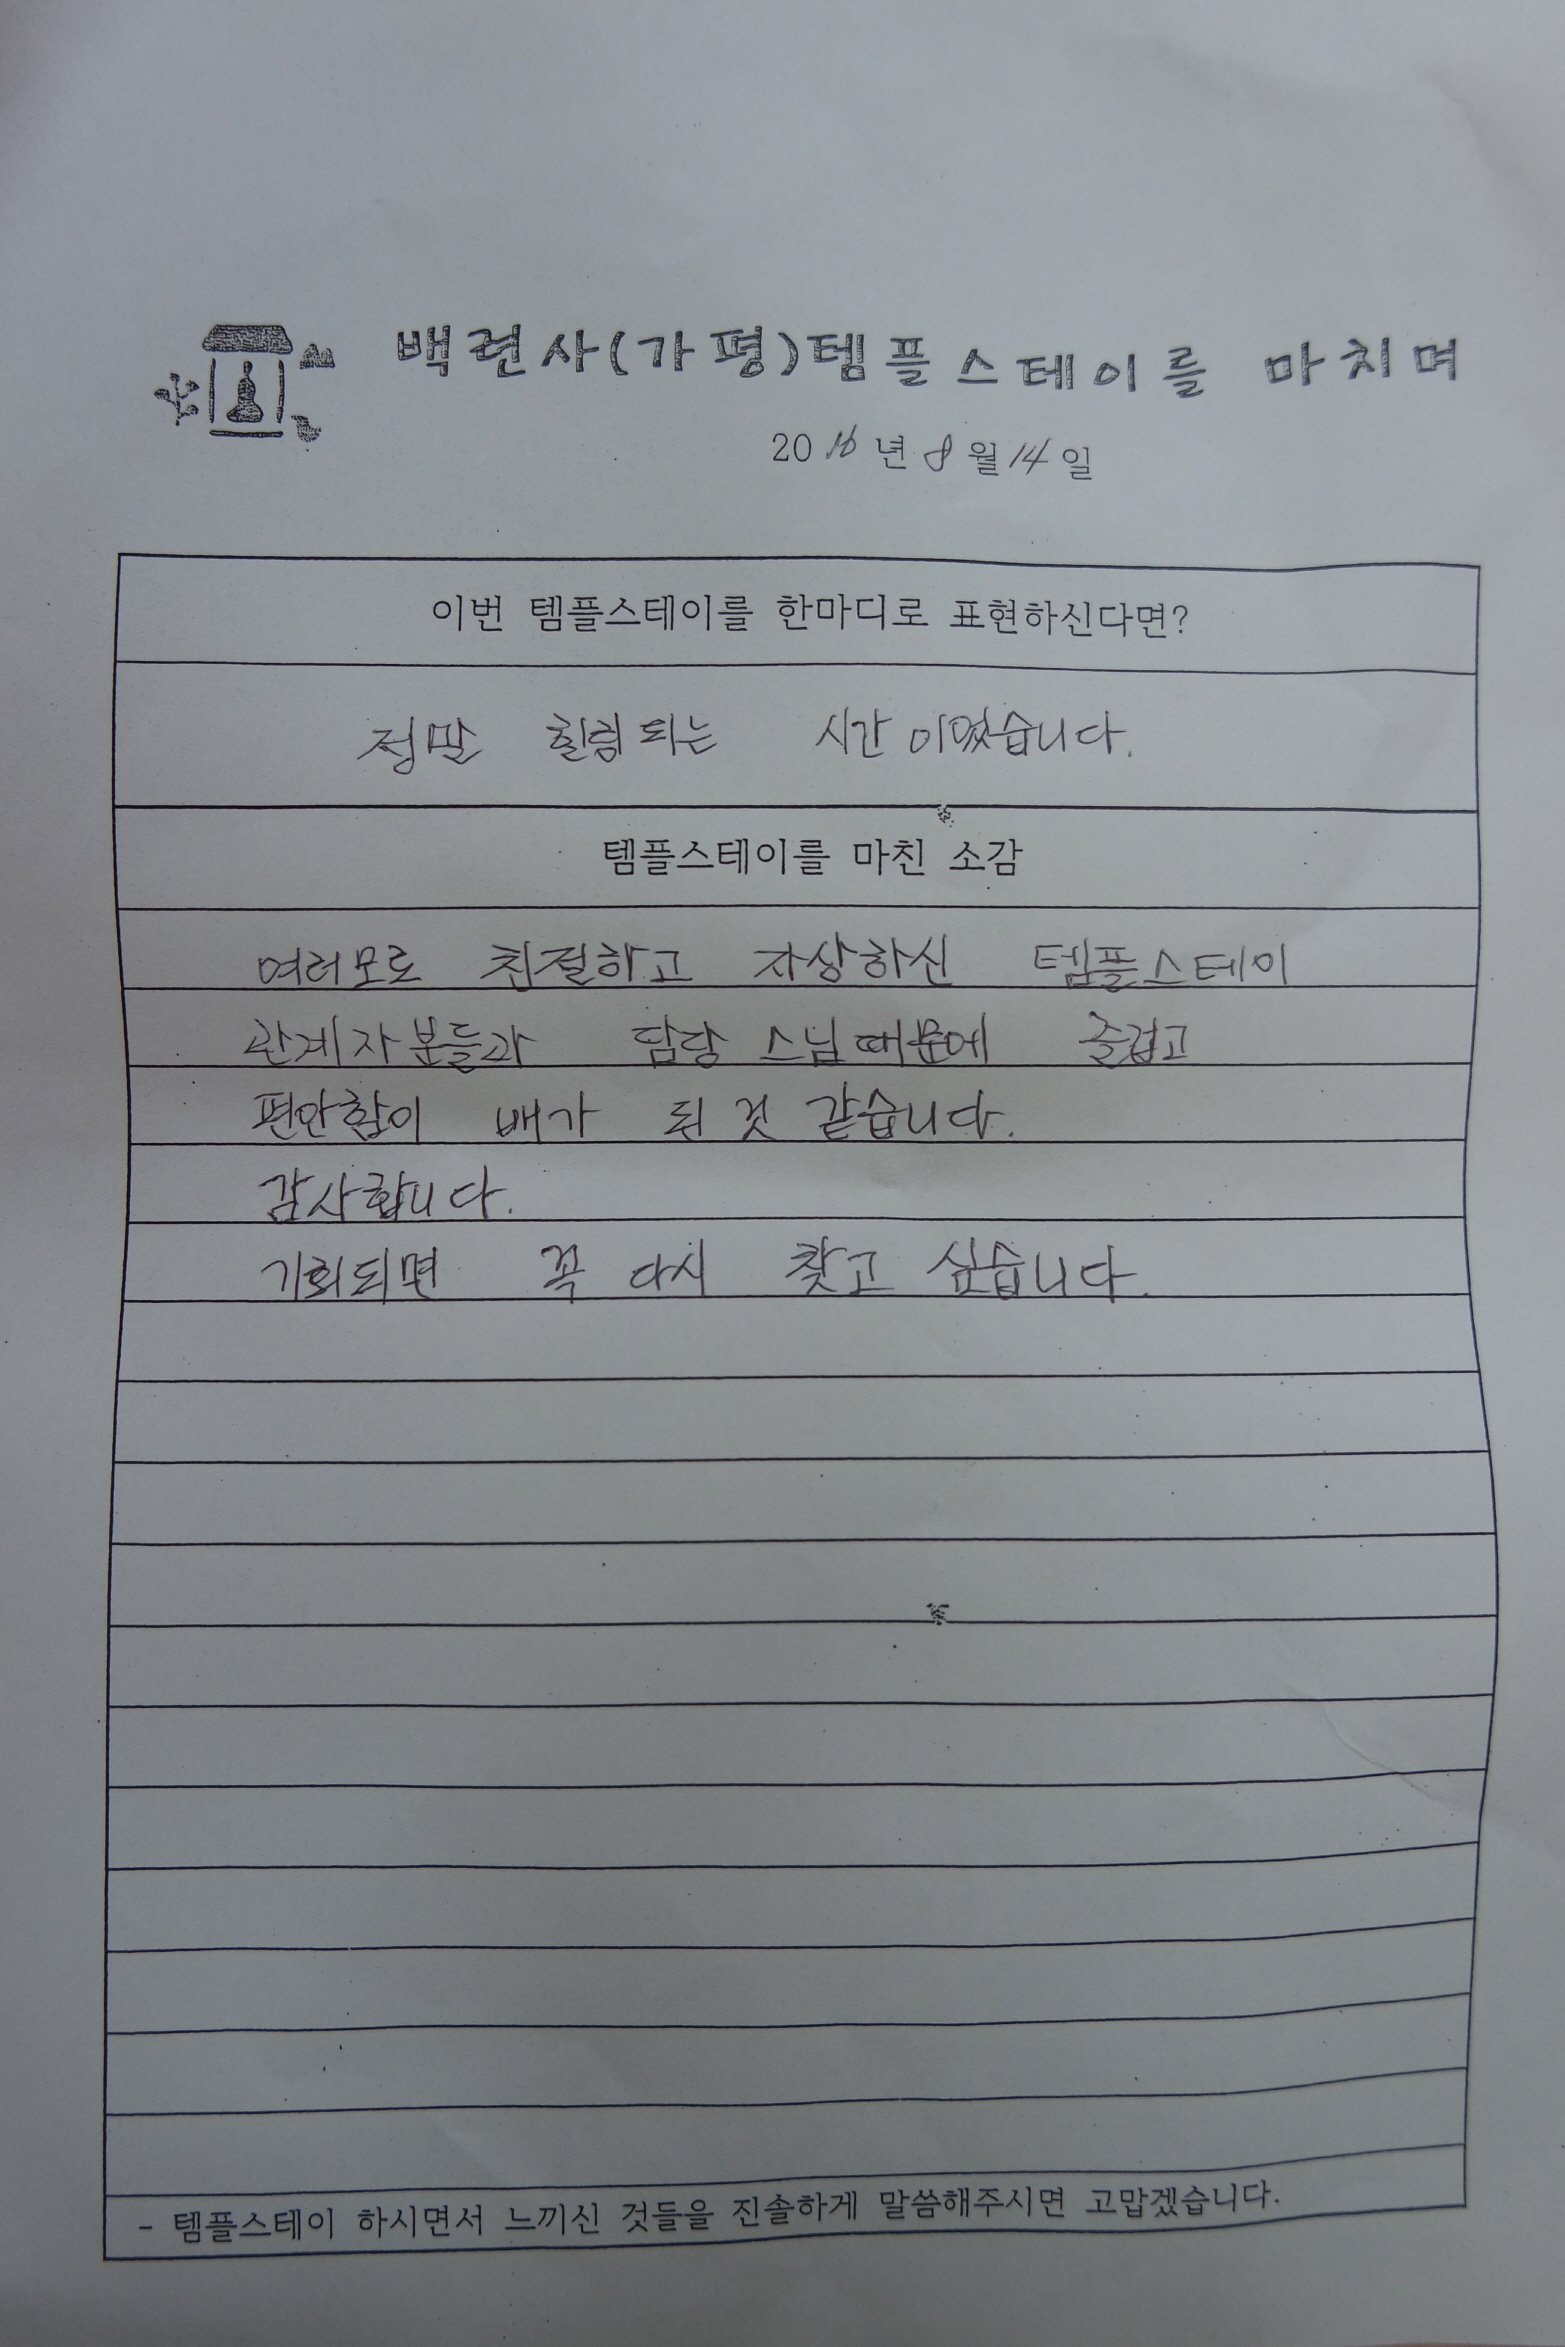 백련사(가평)템플스테이를 마치며
2016년 8월 14일
이번 템플스테이를 한마디로 표현하신다면?
정말 힐림되는 시간이었습니다.
템플스테이를 마친 소감
여러모로 친절하고 자상하신 템플스테이
관계자분들과 담당 스님때문에 즐겁고
편안함이 배가 된 것 같습니다.
감사합니다.
기회되면 꼭 다시 찾고 싶습니다.
- 템플스테이 하시면서 느끼신 것들을 진솔하게 말씀해주시면 고맙겠습니다.